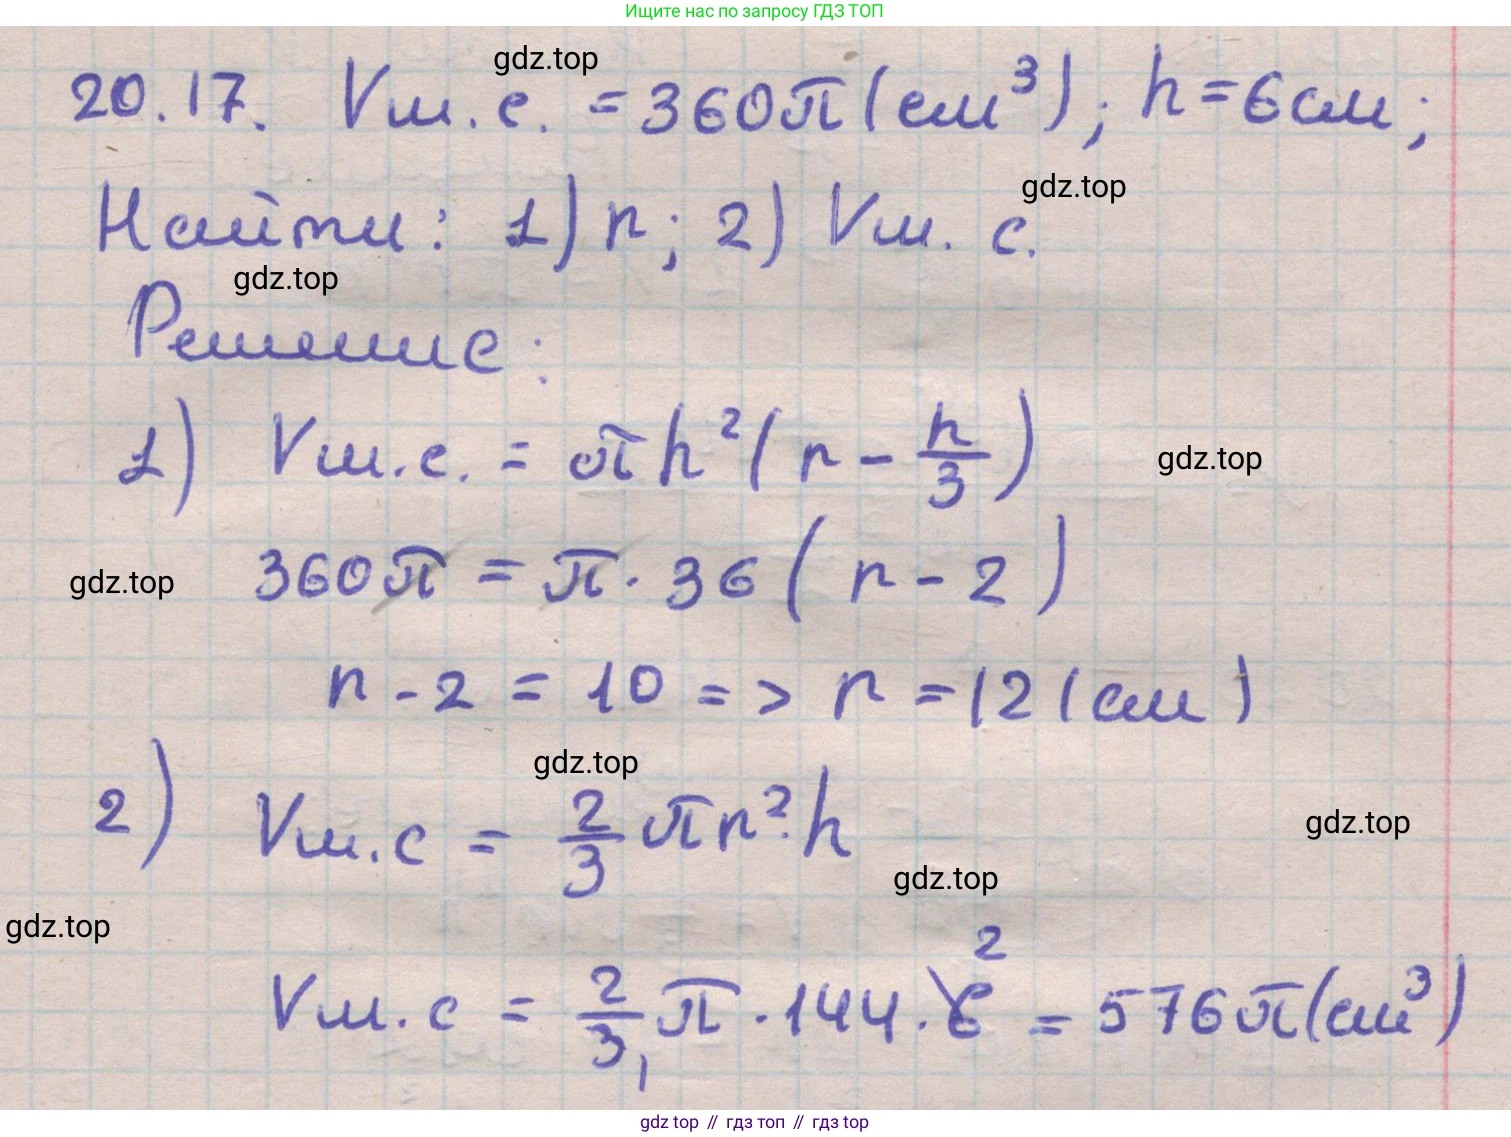 Ищите нас по запросу ГДЗ ТОП
gdz.top
20.17. Vш.с. = 360π (см³); h = 6 см;
gdz.top
Найти: 1) r; 2) Vш. с.
gdz.top
Решение:
1) Vш.с. = πh²(r - h/3)
gdz.top
gdz.top
360π = π · 36 (r - 2)
r - 2 = 10 => r = 12 (см)
gdz.top
2) Vш.с = 2/3 πr² · h
gdz.top
gdz.top
gdz.top
2
Vш.с = 2/3 π · 144 · 6 = 576π (см³)
1
gdz top // гдз топ // гдз top